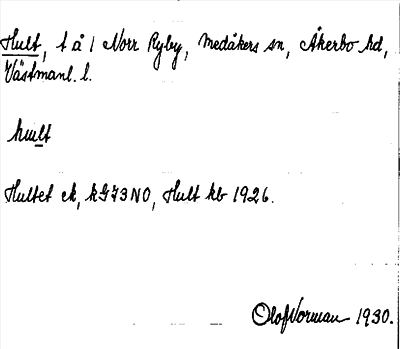 Hult, t å 1 Norr Ryby, Medåkers sn, Åkerbo hd,
Västmanl. l.
hult
Hultet ek, kG73NO, Hult kb 1926.
Olof Norman 1930.